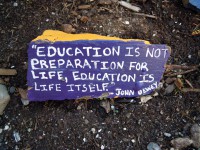 "EDUCATION IS NOT
PREPARATION FOR
LIFE, EDUCATION IS
LIFE ITSELF" - JOHN DEWEY